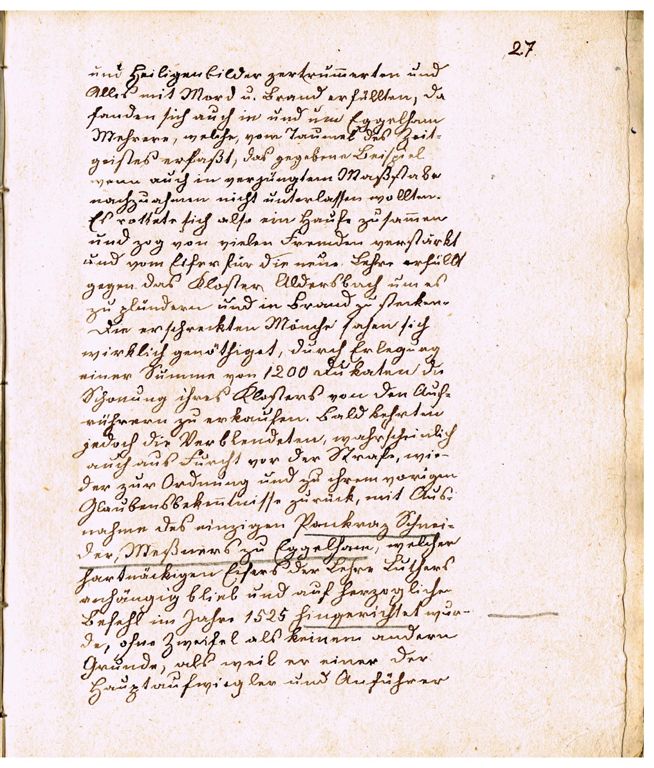 27
und Heiligenbilder zertrümmerten und
Alles mit Mord u. Brand erfüllten, da
fanden sich auch in und um Eggelham
Mehrere, welche, vom Taumel des Zeit-
geistes erfaßt, das gegebene Beispiel
wenn auch in verjüngtem Maßstabe
nachzuahmen nicht unterlassen wollten.
Es rottete sich also ein Haufe zusammen
und zog von vielen Fremden verstärkt
und vom Eifer für die neue Lehre erfüllt
gegen das Kloster Aldersbach um es
zu plündern und in Brand zu stecken.
Die erschreckten Mönche sahen sich
wirklich genöthiget, durch Erlegung
einer Summe von 1200 Dukaten die
Schonung ihres Klosters von den Auf-
rührern zu erkaufen. Bald kehrten
jedoch die Verblendeten, wahrscheinlich
auch aus Furcht vor der Strafe, wie-
der zur Ordnung und zu ihrem vorigen
Glaubensbekenntnisse zurück, mit Aus-
nahme des einzigen Pankraz Schnei-
der, Meßners zu Eggelham, welcher
hartnäckigen Eifers der Lehre Luthers
anhängig blieb und auf herzoglichen
Befehl im Jahre 1525 hingerichtet wur-
de, ohne Zweifel als keinem andern
Grunde, als weil er einer der
Hauptaufwiegler und Anführer